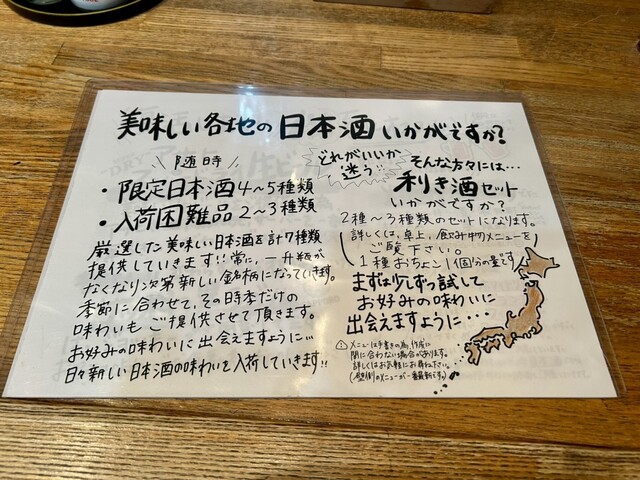 美味しい各地の日本酒いかがですか?
随時
・限定日本酒4〜5種類
・入荷困難品2〜3種類
厳選した美味しい日本酒を計7種類
提供していきます!!常に、一升瓶が
なくなり次第新しい銘柄になっていきます。
季節に合わせて、その時季だけの
味わいもご提供させて頂きます。
お好みの味わいに出会えますように…
日々新しい日本酒の味わいを入荷していきます!!
どれがいいか
迷う
そんな方々には…
利き酒セット
いかがですか?
2種〜3種類のセットになります。
詳しくは、卓上、飲み物メニューを
ご覧下さい。
1種おちょこ1個分の量です
まずは少しずつ試して
お好みの味わいに
出会えますように・・・
メニューは手書きの為、作成が
間に合わない場合があります。
詳しくはお気軽にお尋ね下さい。
(壁側のメニューが一番最新です。)